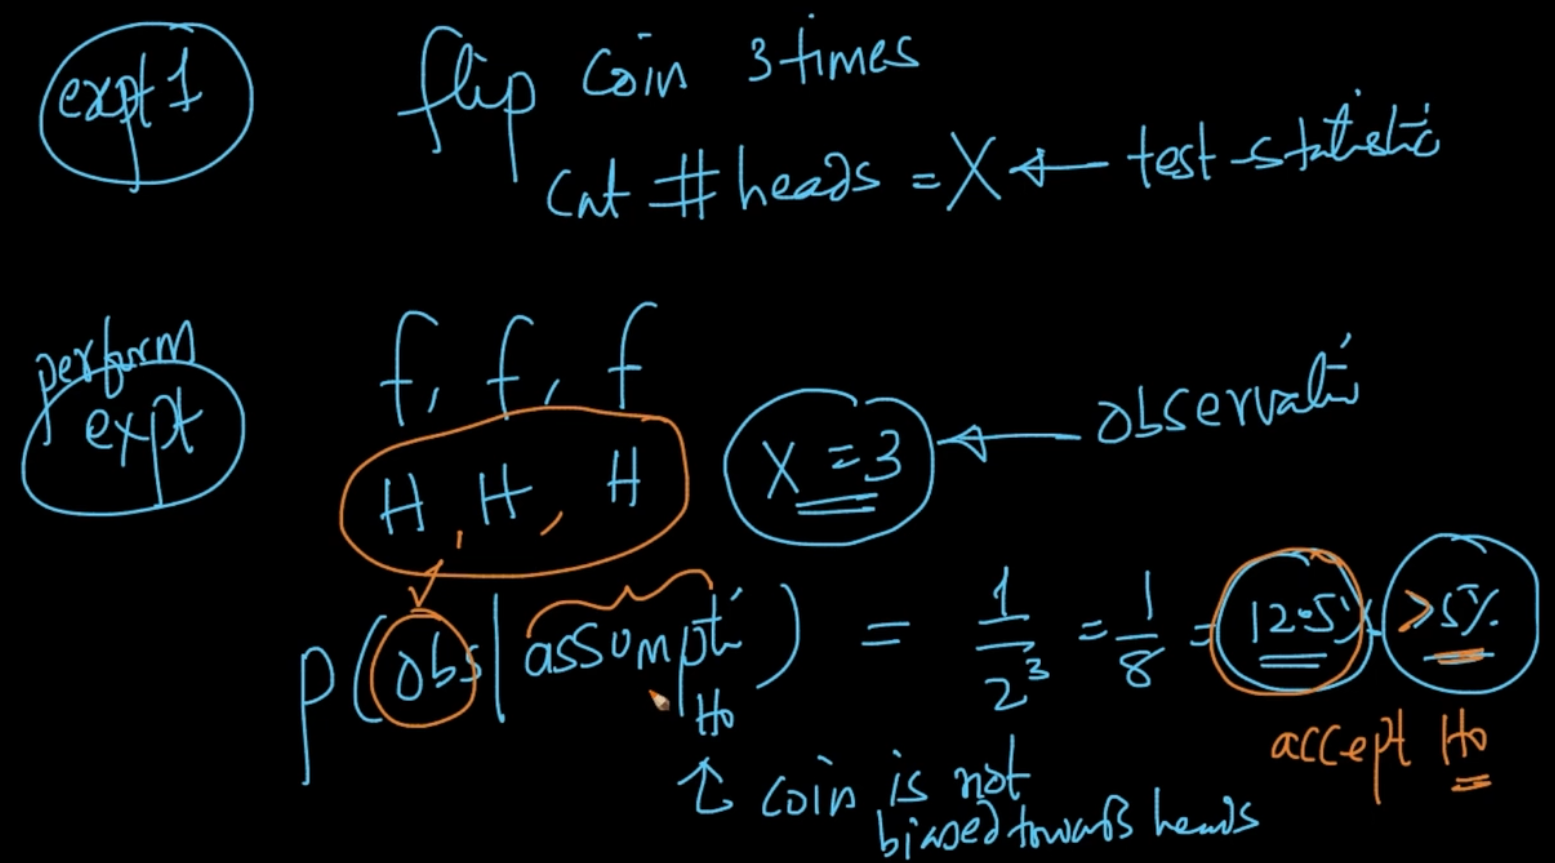 expt 1
flip coin 3 times
Cnt # heads = X ← test statistic
perform
expt
f, f, f
H, H, H X = 3 ← observati
P(obs | assumpti H₀) = 1/2³ = 1/8 = 12.5% > 5%
accept H₀
↑ coin is not
biased towards heads